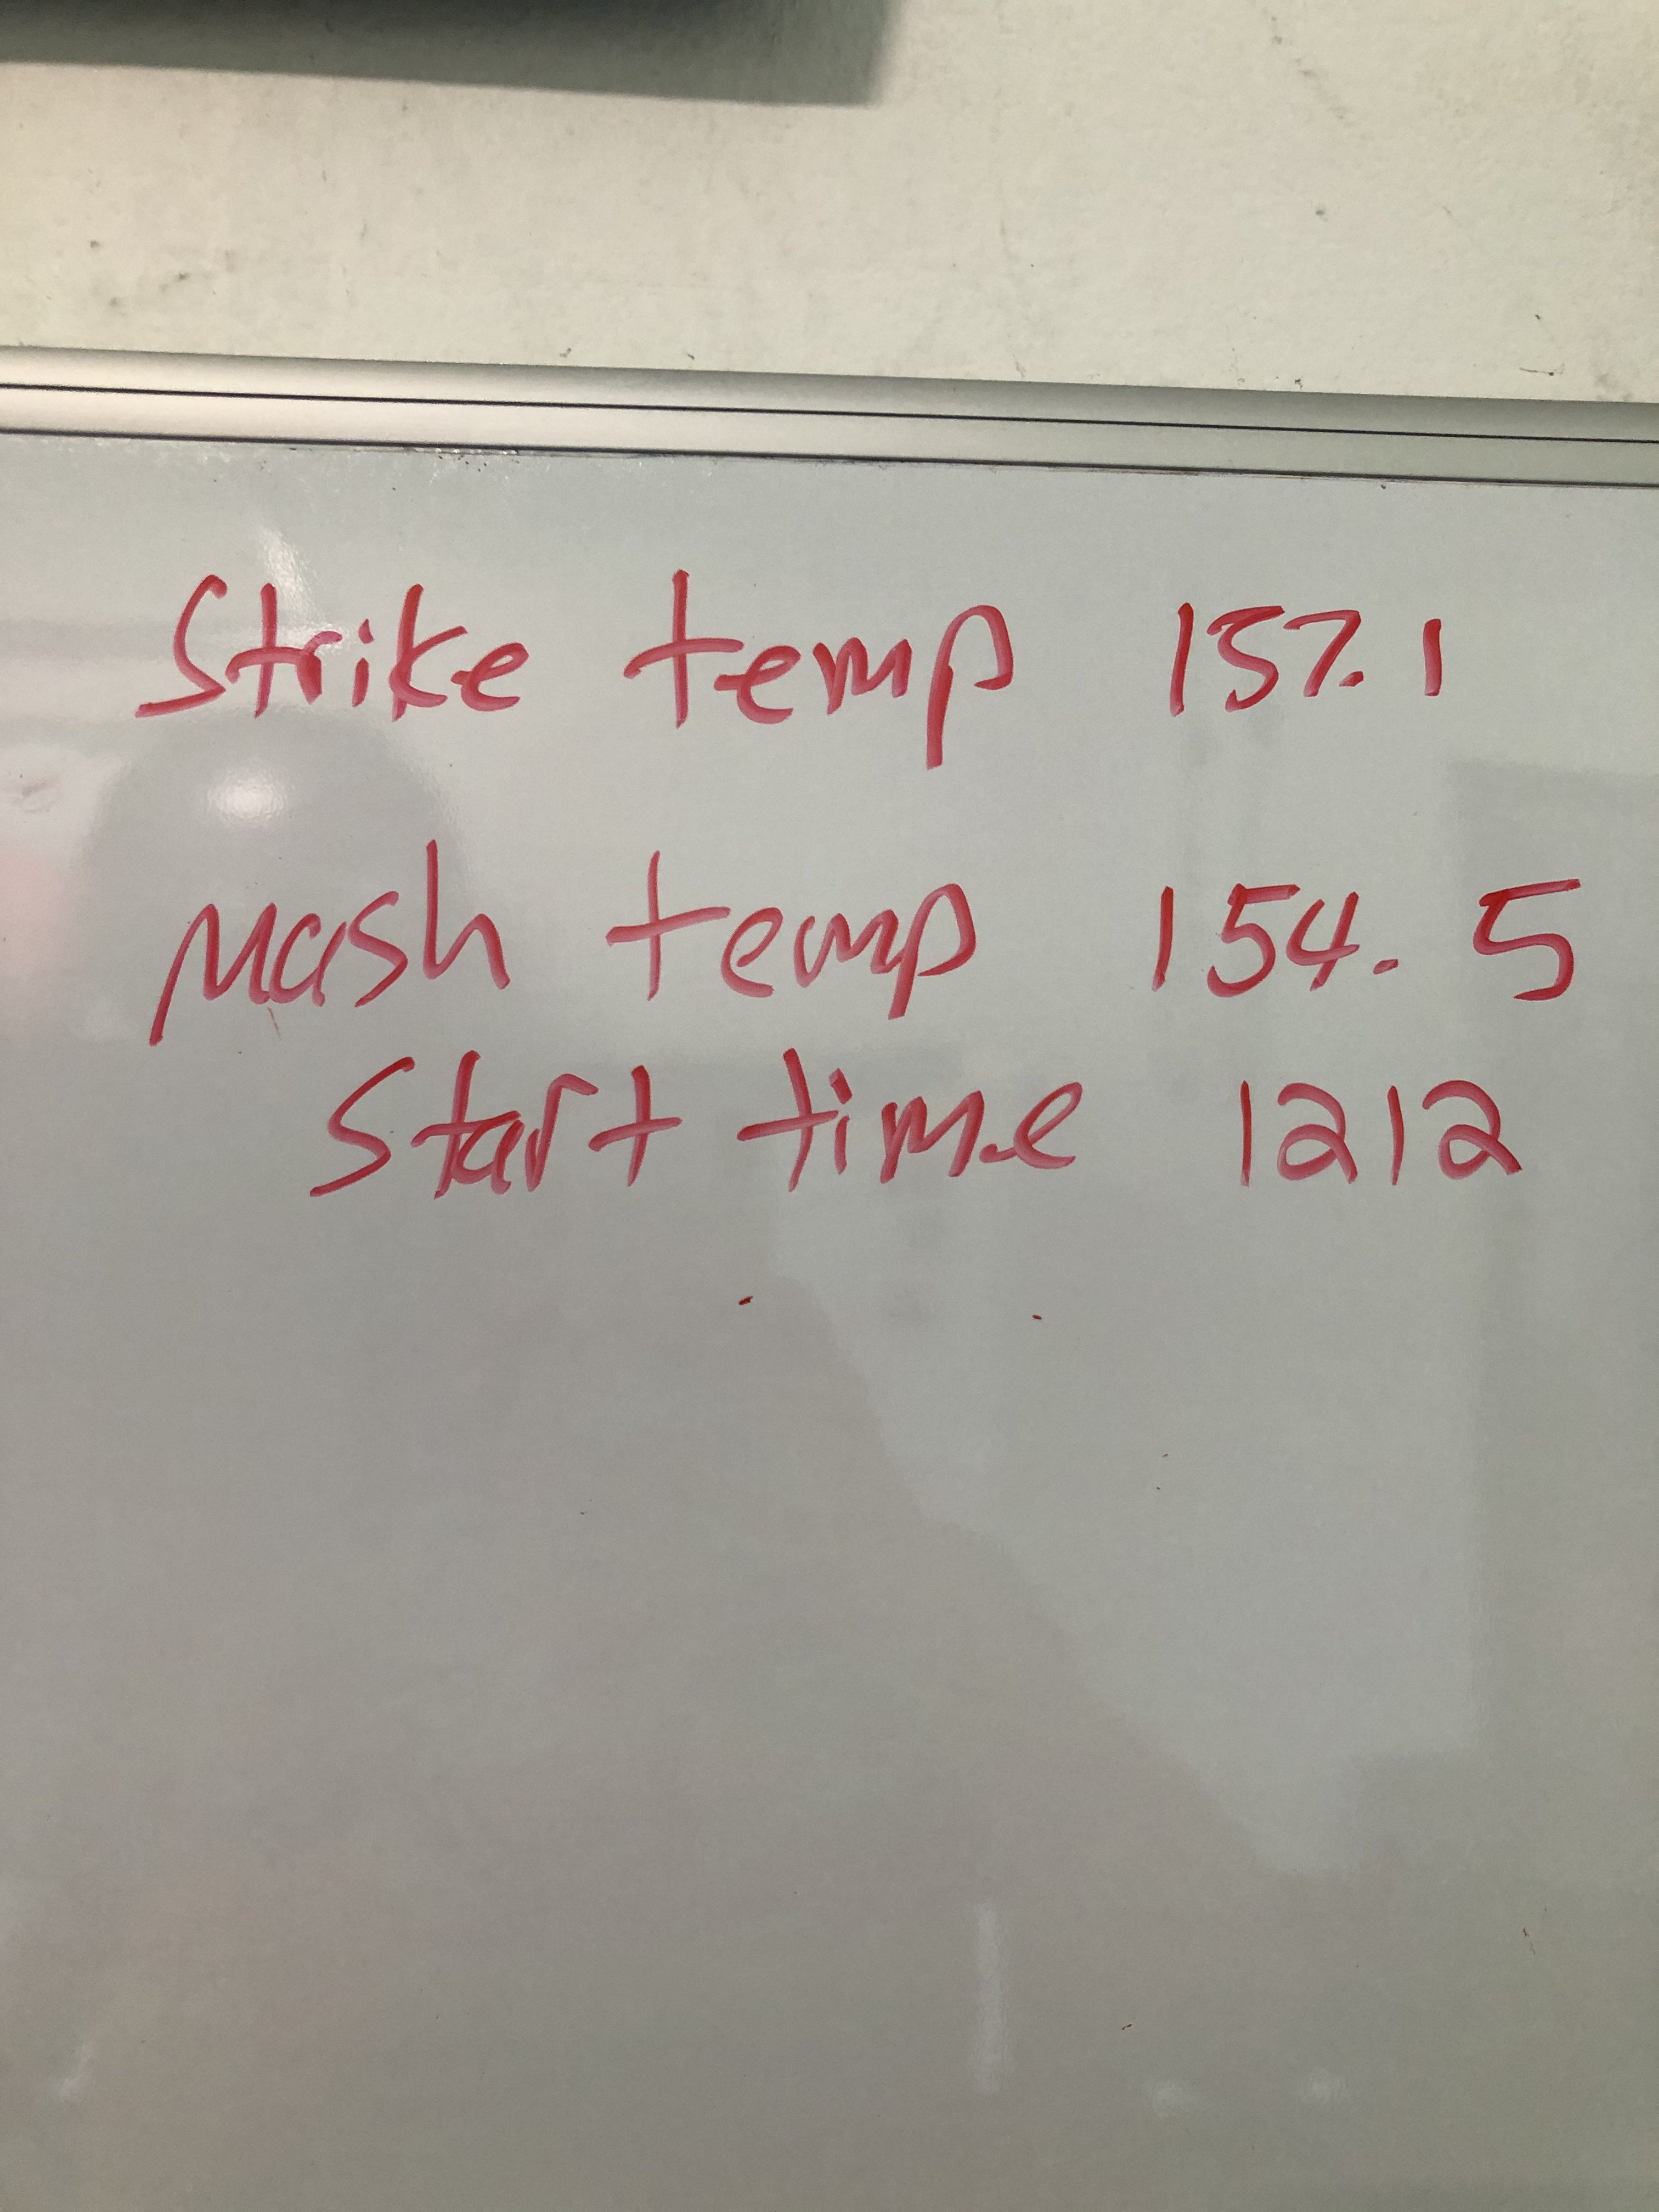 Strike temp 157.1
Mash temp 154.5
Start time 1212